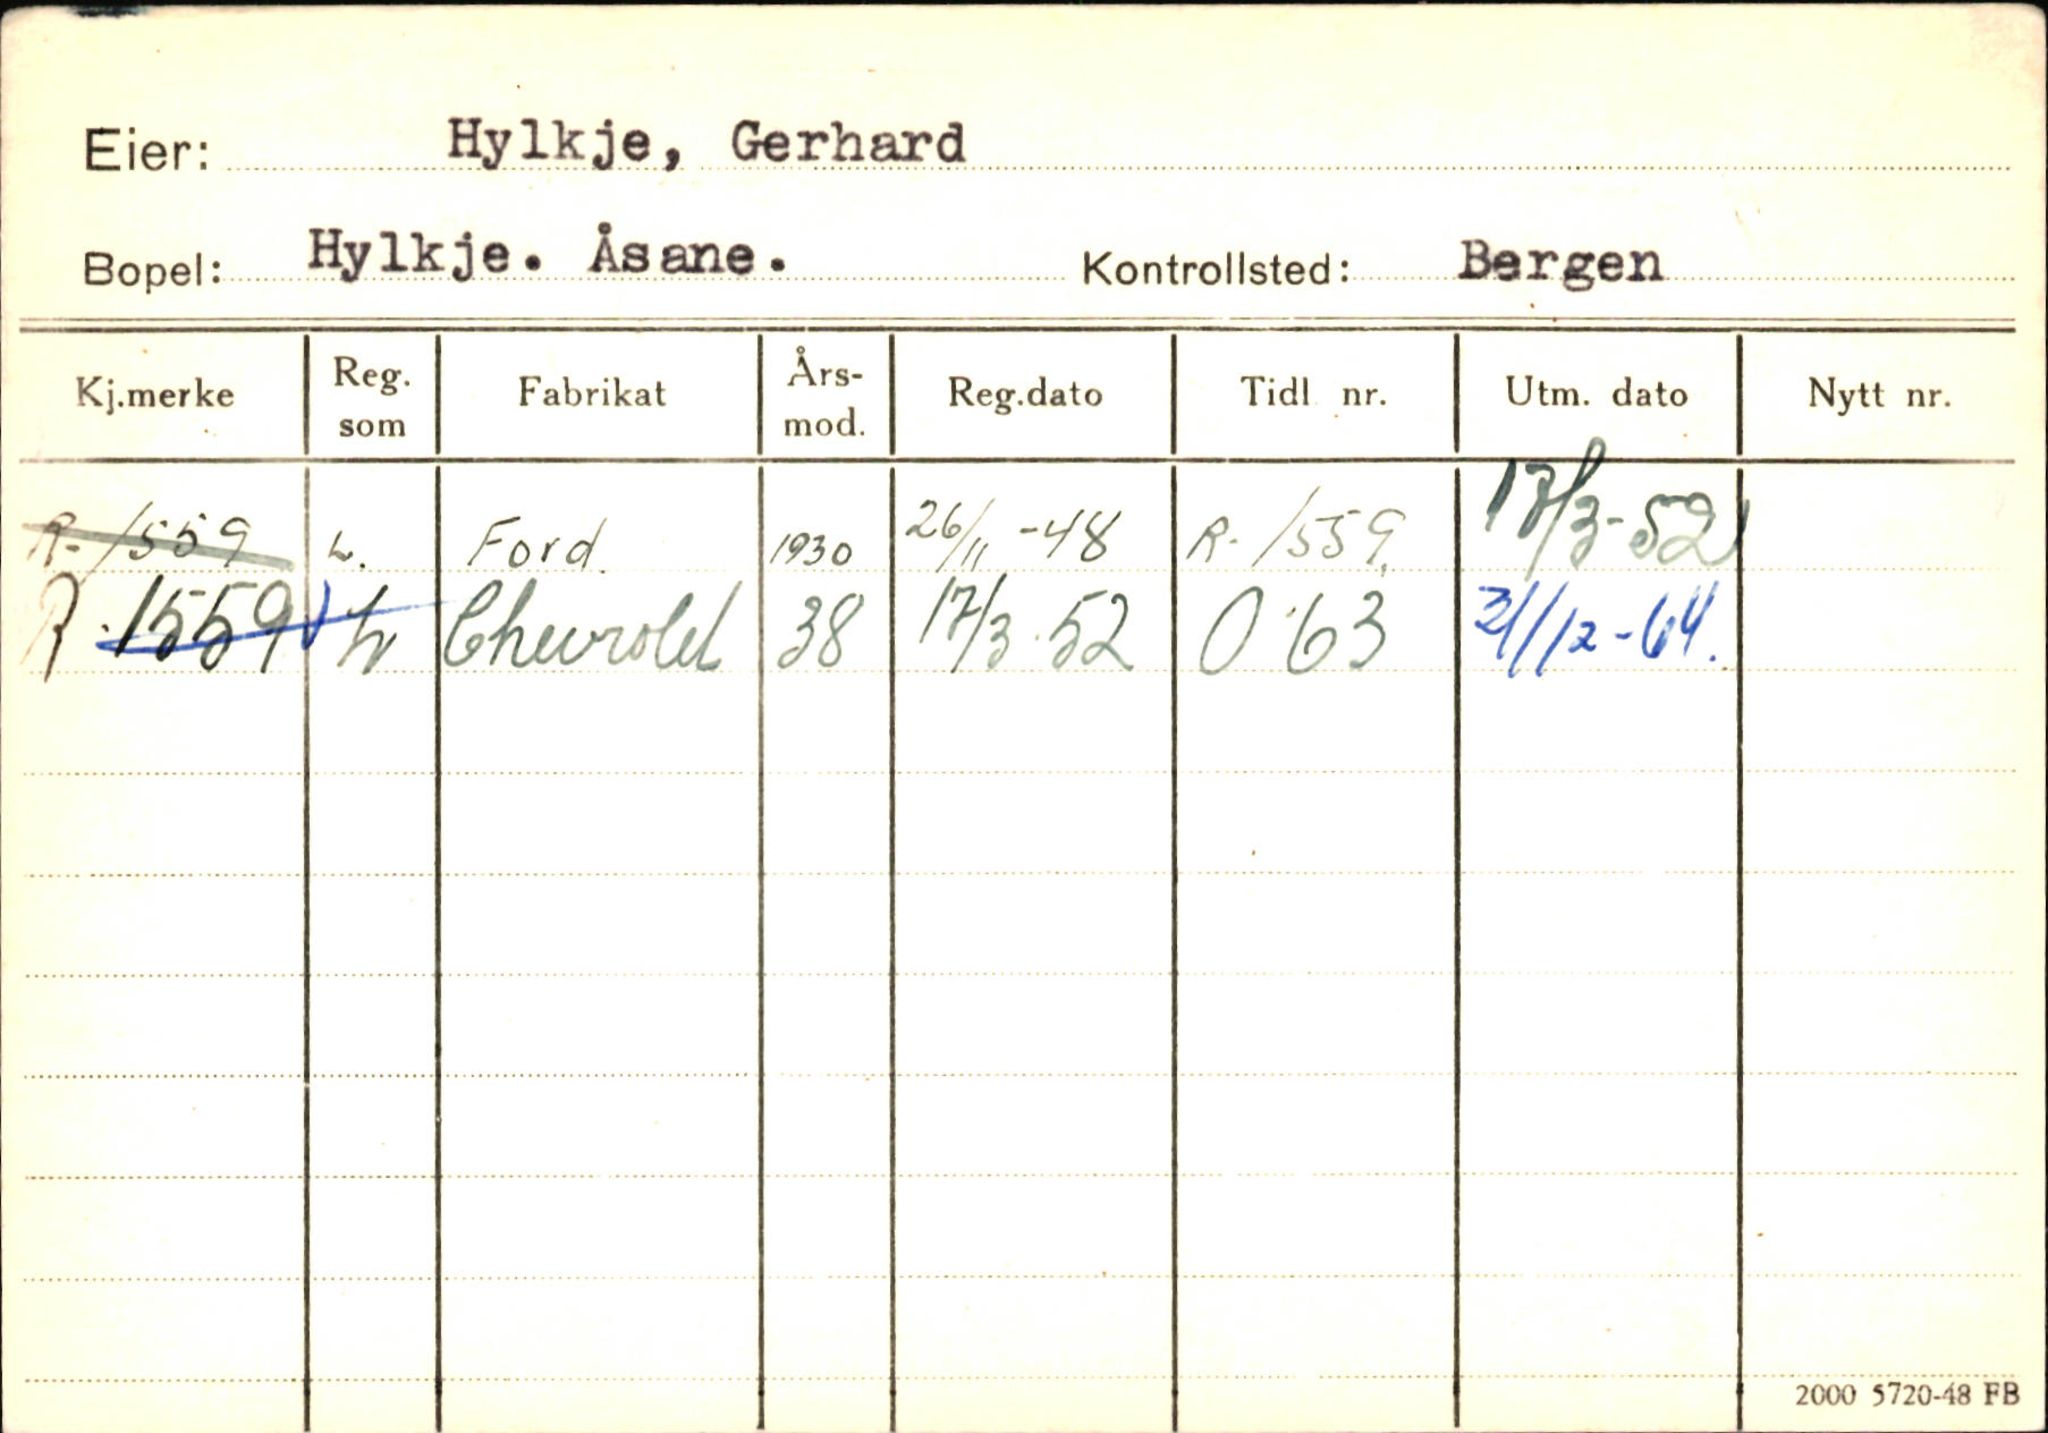 Eier: Hylkje, Gerhard
Bopel: Hylkje. Åsane. Kontrollsted: Bergen
Kj.merke Reg. som Fabrikat Års-mod. Reg.dato Tidl nr. Utm. dato Nytt nr.
R-1559 L. Ford. 1930 26/11-48 R-1559. 17/3-52
R.1559 L Chevrolet 38 17/3 52 O 63 31/12-64.
2000 5720-48 FB